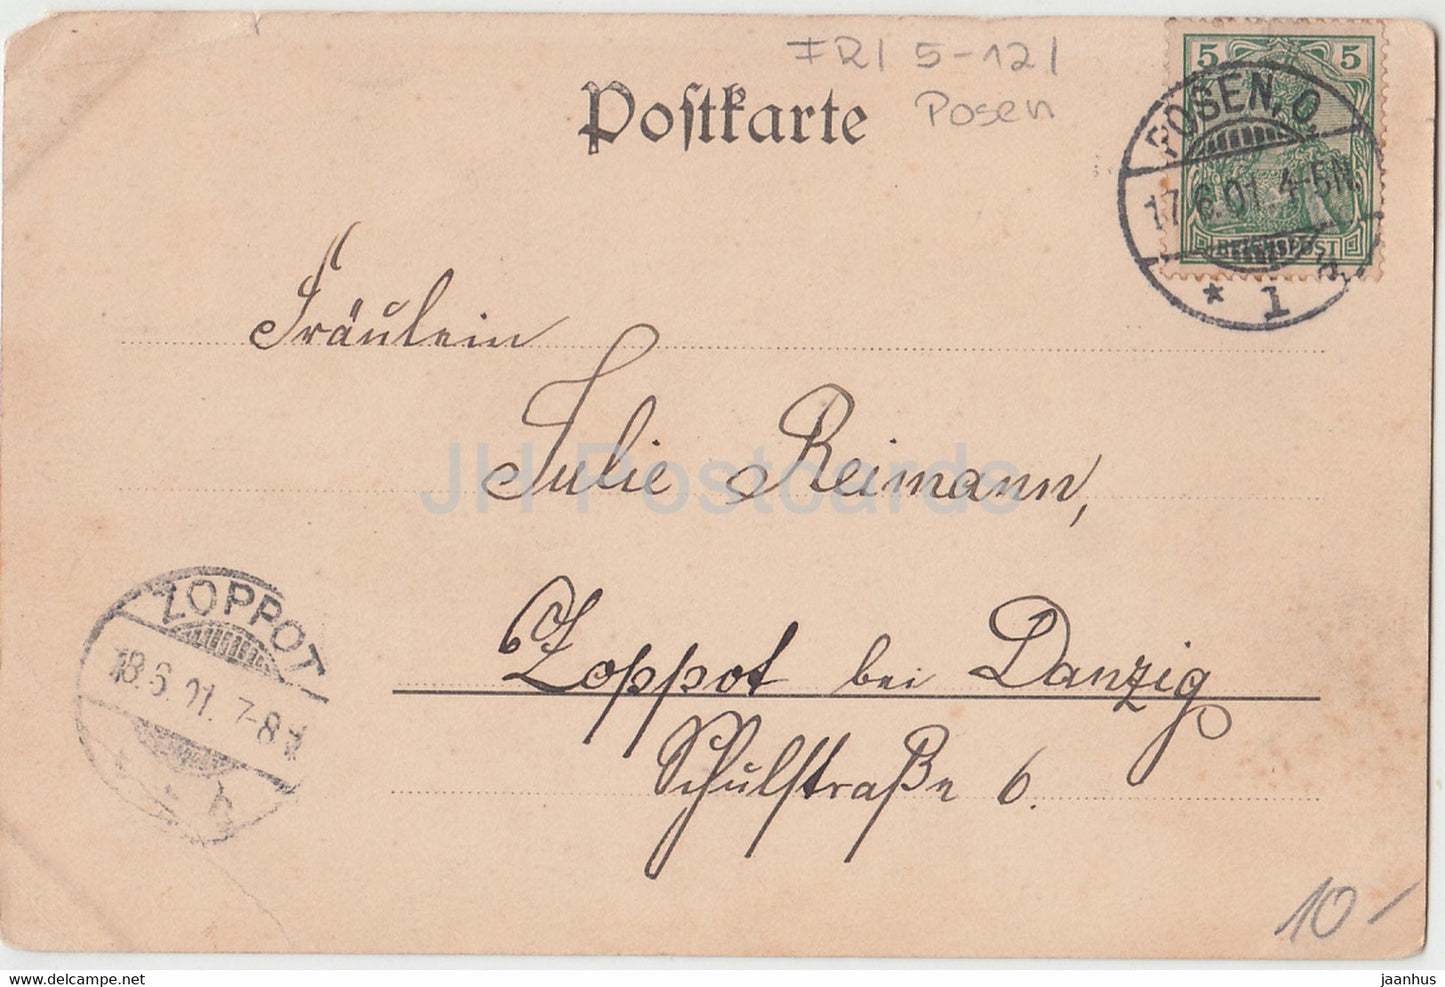 IRI 5-121
Posen
Postkarte
5 5
REICHSPOST
POSEN, O.
17.6.01. 4-5N.
* 1
Fräulein
Julie Reimann,
Zoppot bei Danzig
Schulstraße 6.
ZOPPOT
18.6.01. 7-8V
* b
10-
JH Postcards
www.delcampe.net
jaanhus